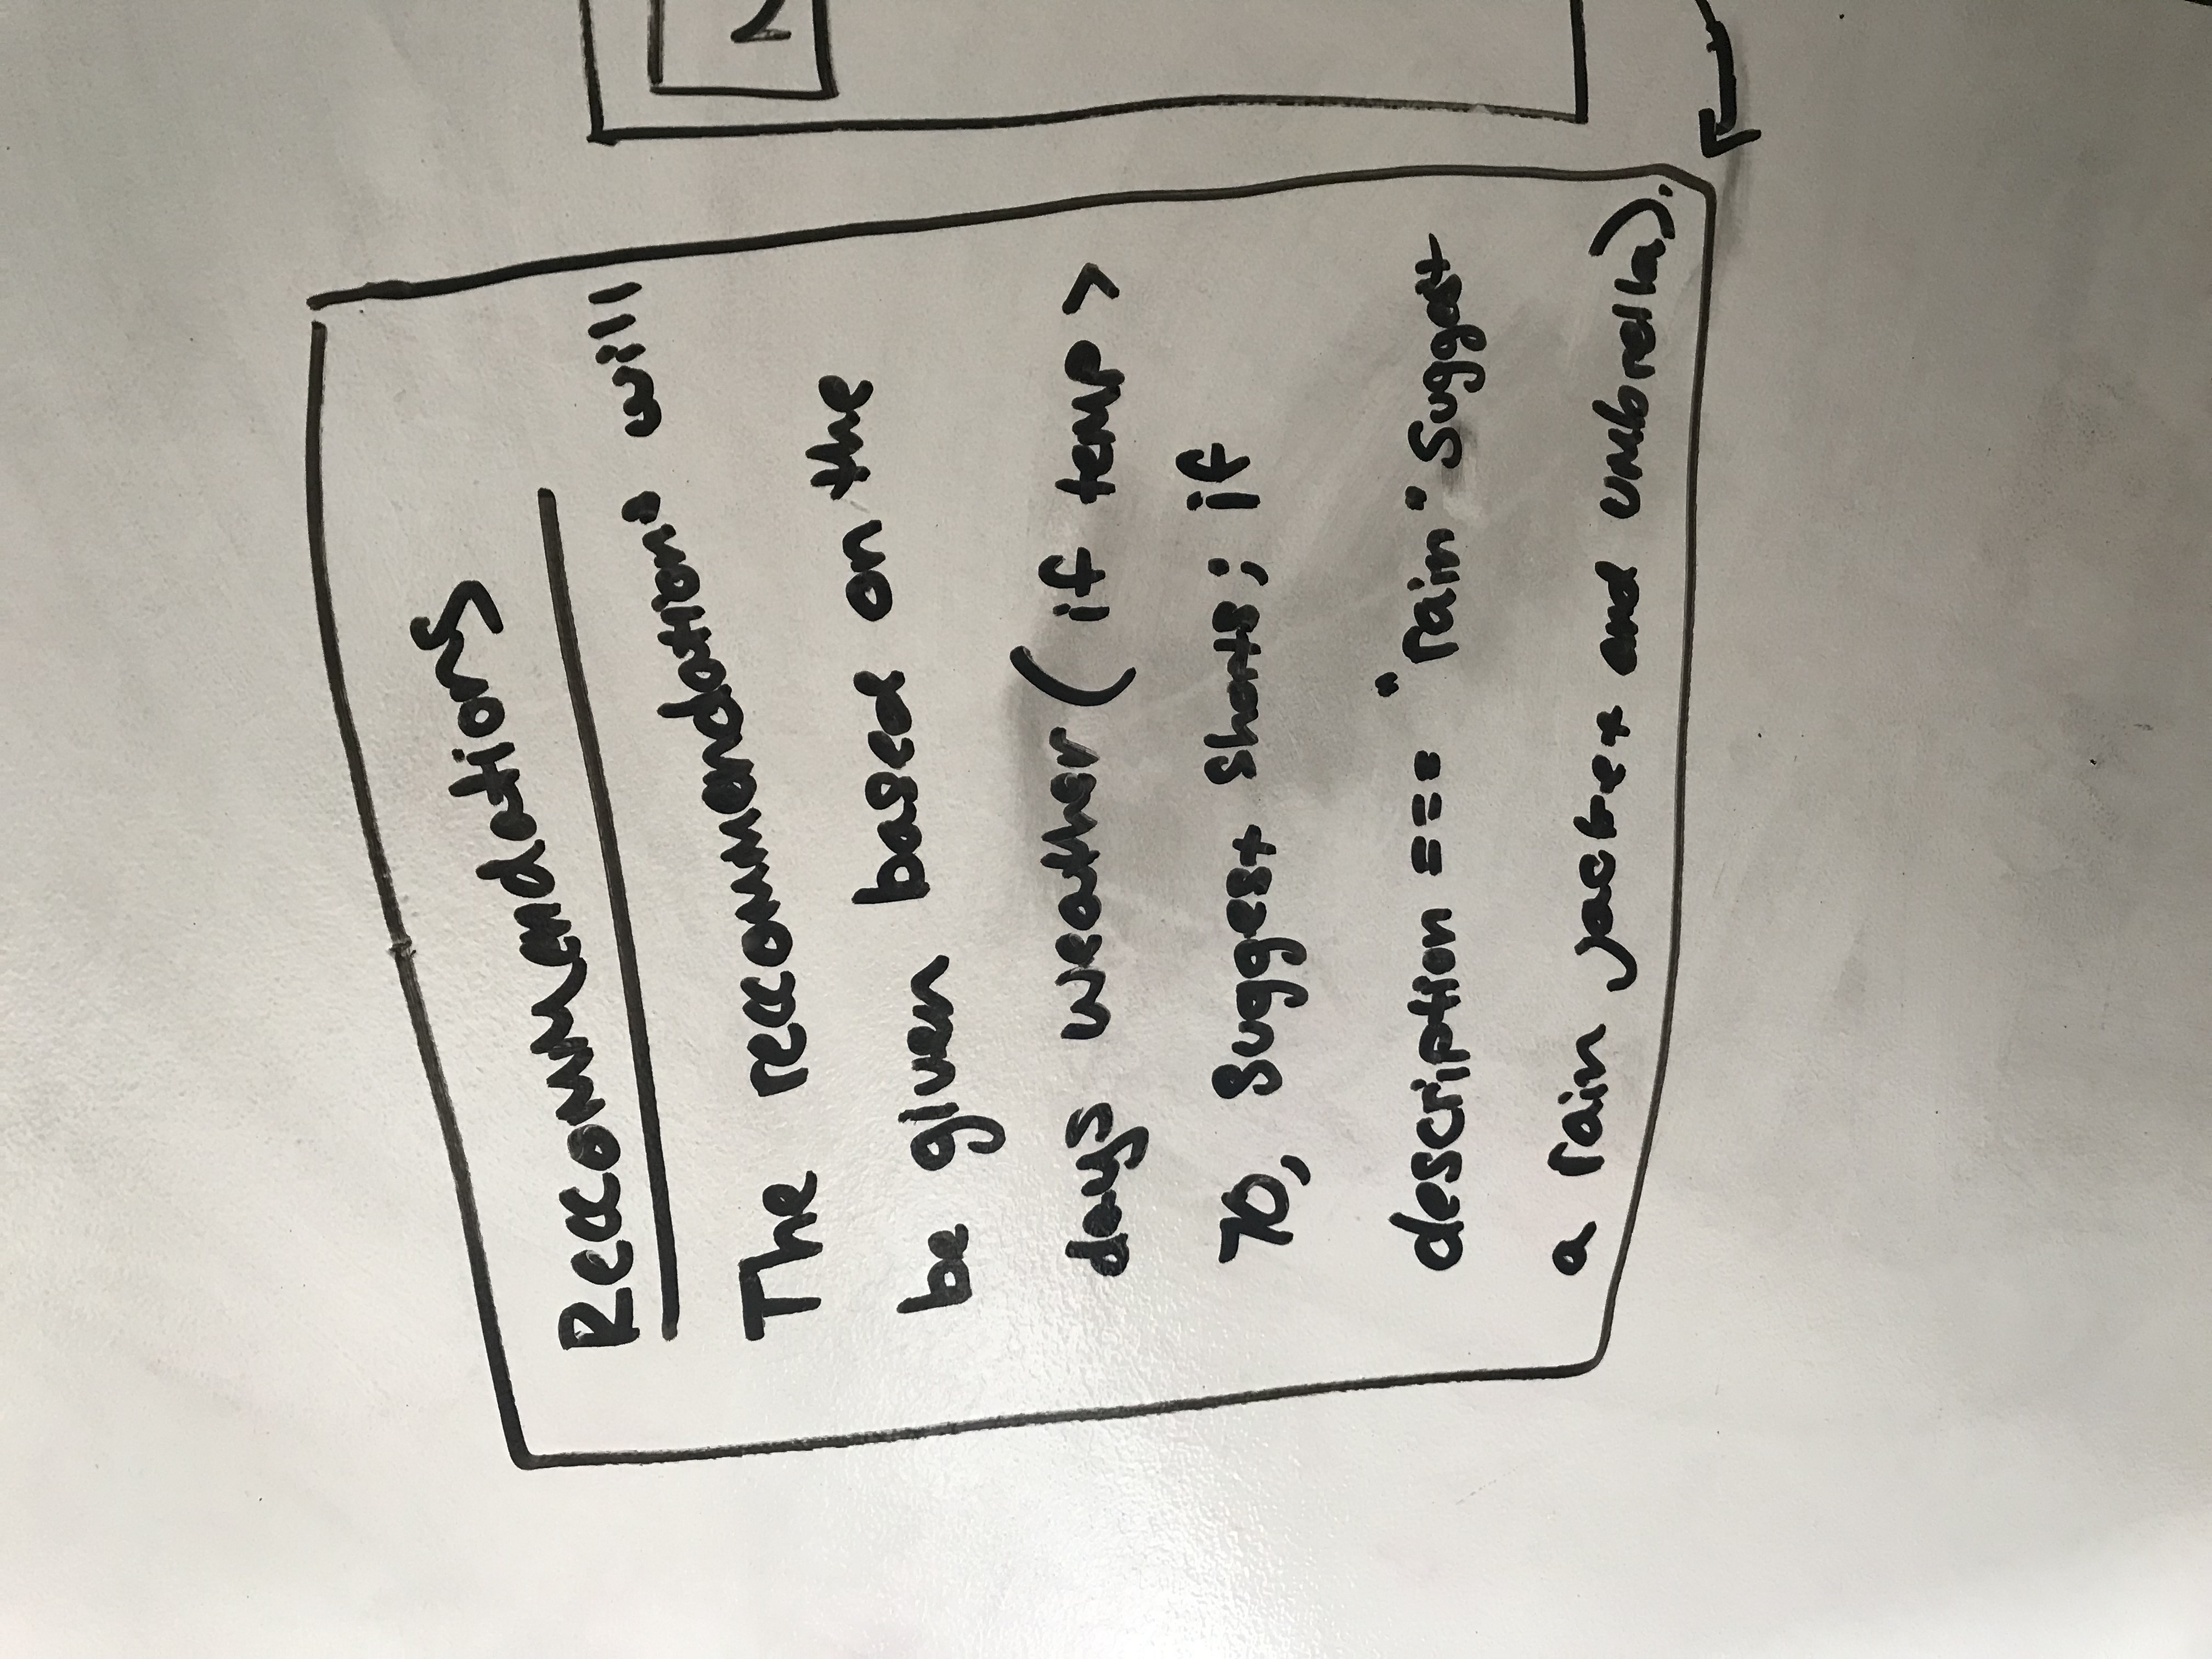 Reccommendations
The reccommendations will
be given based on the
days weather ( if temp >
70, Suggest Shorts; if
description === "rain" Suggest
a rain jacket and umbrella).